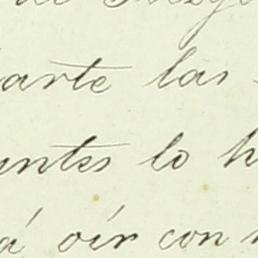 de
arte las
untes lo h
á oír con